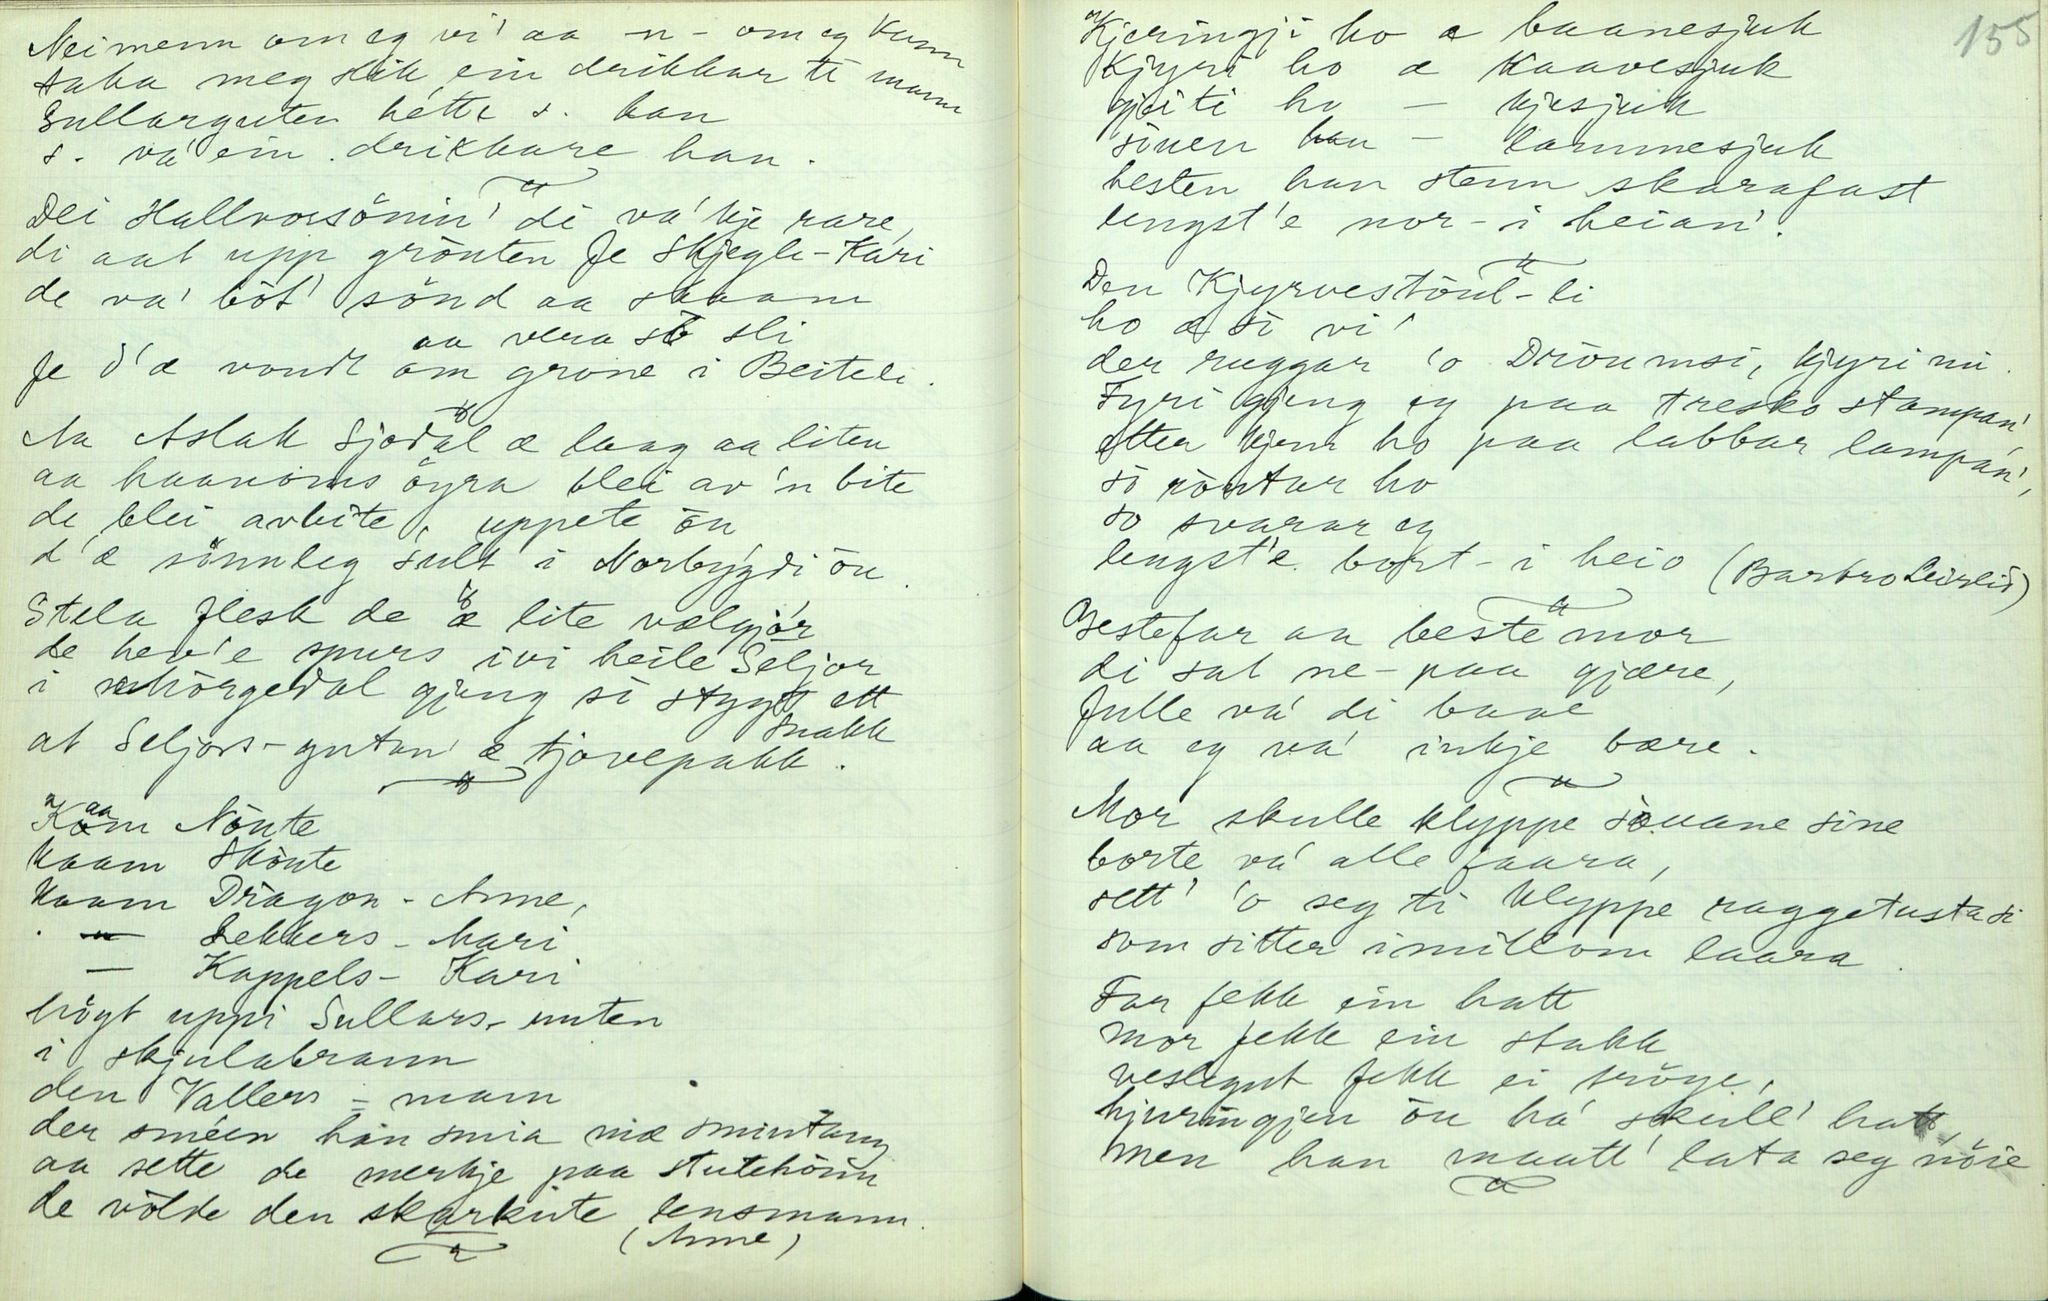 Nei menn om eg vi' aa -n- om eg kunn
taka meg slik ein drikkar ti mann
Sullarguten hette s. han
s. va' ein drikkare han.
Dei Hallvorsönin' di va' kje rare,
di aat upp grönten fe Skjegle-Kari
de va' böt' sönd aa skaam
aa vera sö sli
fe d'æ vondt om grone i Beiteli.
Aa Aslak Sjodal æ laag aa liten
aa haanoms öyra blei av 'n bite
de blei avbite, uppete ön
d'æ sönnleg sult i Norbygdi ön.
Stela flesk de æ lite vælgjör
de hev'e spurs ivi heile Seljor
i Hörgedal gjeng si stygt ett
snakk
at Seljors-gutan' æ tjovepakk.
Kaam Nönte
Kaam Skönte
Kaam Dragon-Anne,
— Lekkers-Mari
— Kappels-Kari
högt uppi Sullars-nuten
i skjulabrann
den Vallers-mann
der sméen han smia mæ smiutang
aa sette de merkje paa stutehönn
de völde den skarkite lensmann.
(Anne)
155
Kjeringji ho æ baanesjuk
Kjyri ho æ kaavesjuk
gjeiti ho — kjesjuk
söuen han — lammesjuk
hesten han stenn skarafast
lengst'e nor-i heian'.
Den Kjyrvestöul-li
ho æ si vi'
der ruggar 'o Dröumsi, kjyri mi.
Fyri gjeng eg paa tresko stampan',
etter kjem ho paa labbar lampan',
sö röutar ho
so svarar eg
lengst'e bort-i heio (Barbro Leirlid)
Bestefar aa beste mor
di sat ne-paa gjære,
fulle va' di baae
aa eg va' inkje bære.
Mor skulle klyppe söuane sine
borte va' alle faara,
sett' 'o seg ti klyppe raggetusta si
som sitter imillom laara.
Far fekk ein hatt
mor fekk ein stakk
veslegut fekk ei tröye,
hjuringjen ön há skull' hatt,
men han maatt' lata seg nöie